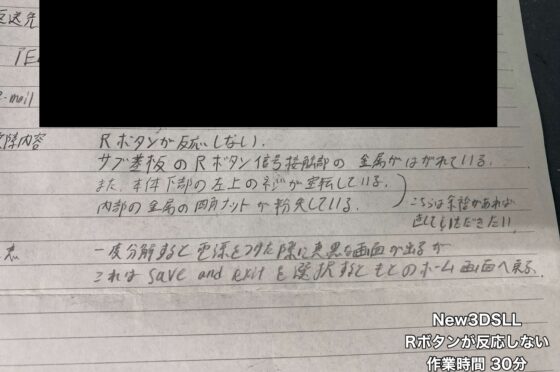 返送先
TEL
e-mail
故障内容 Rボタンが反応しない.
サブ基板のRボタン信号接触部の 金属がはがれている.
また、本体下部の左上のネジが空転している.
内部の金属の四角ナットが紛失している.
こちらは余裕があれば
直してもいただきたい
一度分解すると電源をつけた際に真黒な画面が出るが
これは save and exit を選択するともとのホーム画面へ戻る.
New3DSLL
Rボタンが反応しない
作業時間 30分